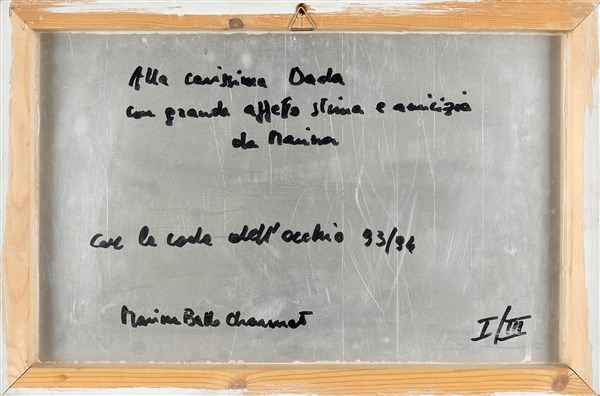 Alla carissima Dada
con grande affetto stima e amicizia
da Marina
con la coda dell'occhio 93/94
Marina Ballo Charmet
I/III